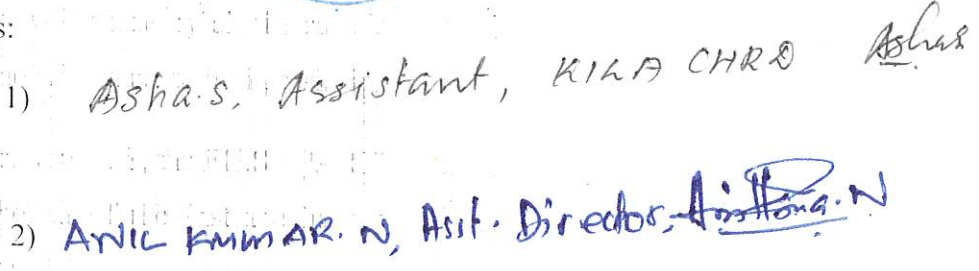 s:
1) Asha.S, Assistant, KILA CHRD Ashas
2) ANIL KUMAR. N, Asst. Director,